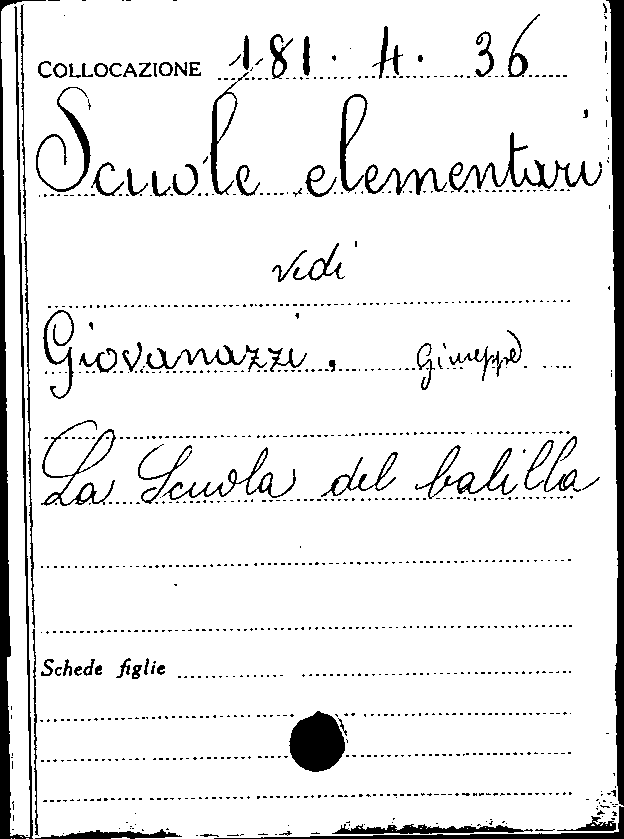 COLLOCAZIONE 181. 4. 36
Scuole elementari
vedi
Giovanazzi. Giuseppe
La Scuola del balilla
Schede figlie